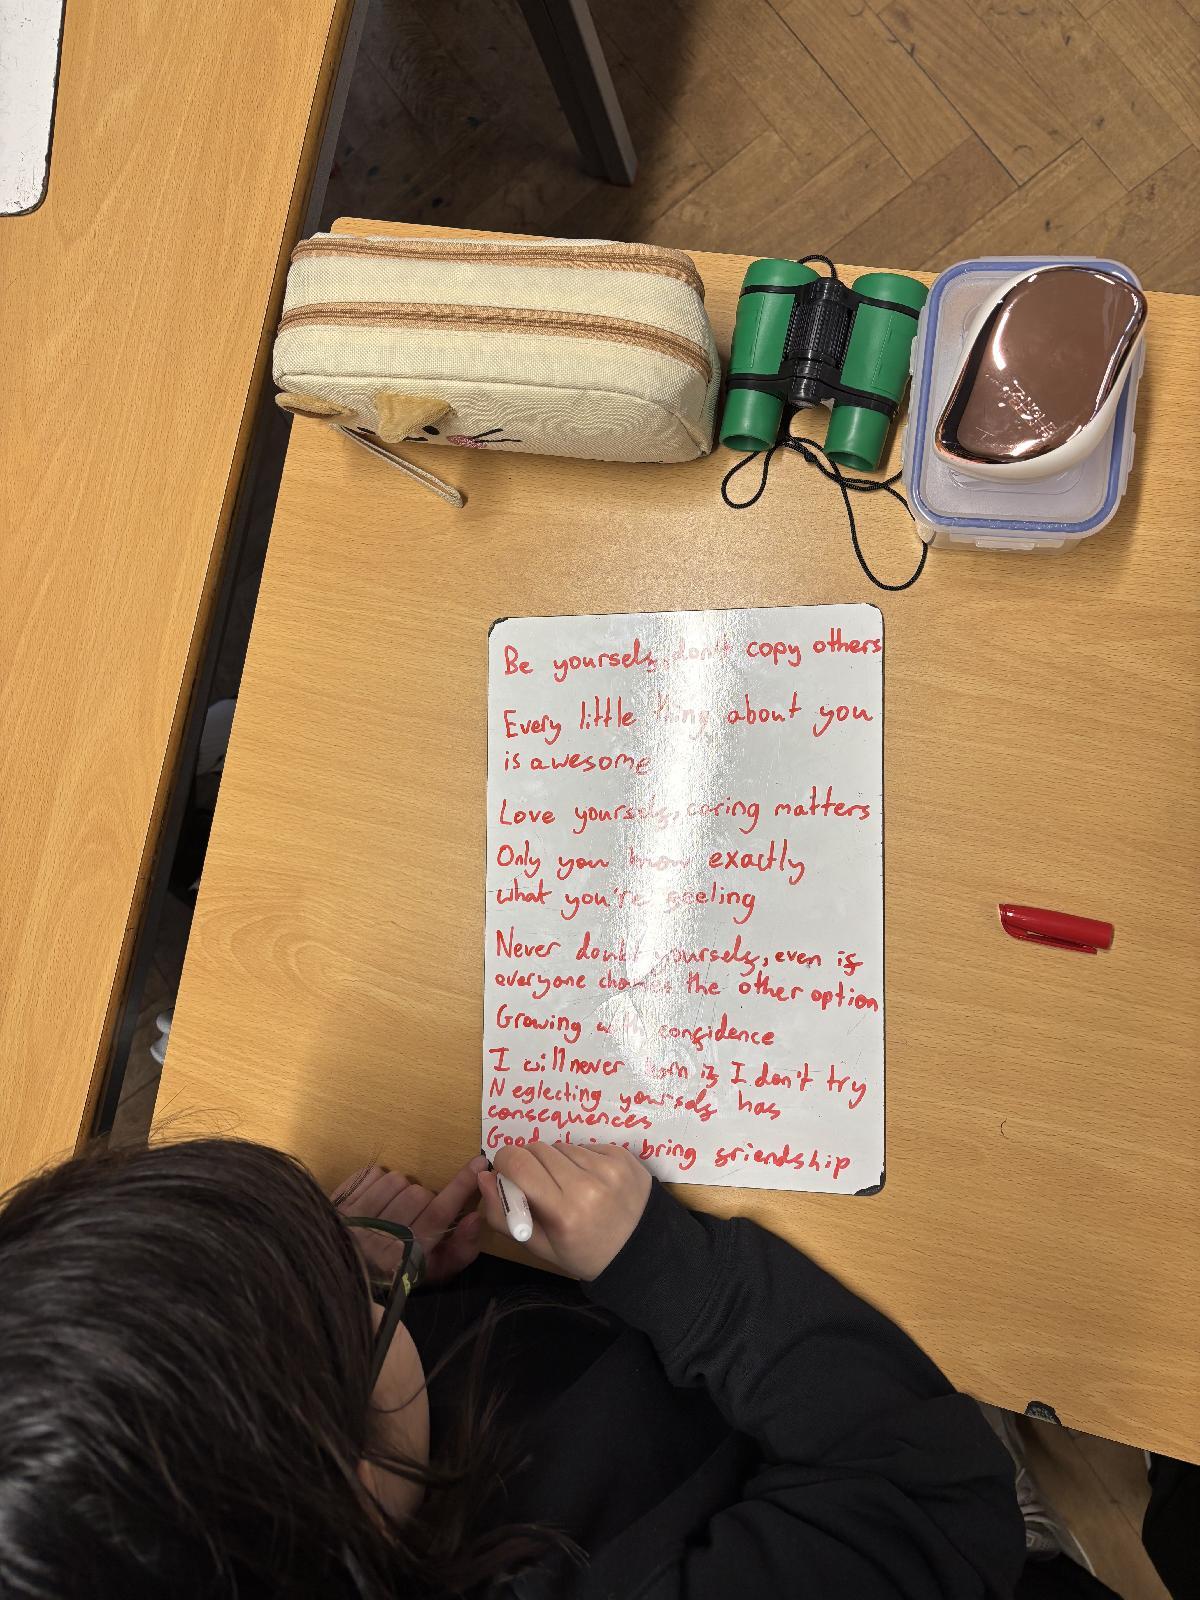 Be yourself, don't copy others
Every little thing about you
is awesome
Love yourself, caring matters
Only you know exactly
what you're feeling
Never doubt yourself, even if
everyone the other option
Growing with confidence
I will never learn if I don't try
Neglecting yourself has
consequences
Good bring friendship
TANGLE
TEEZER